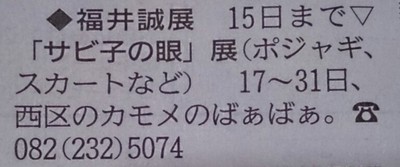 ◆福井誠展　15日まで▽
「サビ子の眼」展(ポジャギ、
スカートなど)　17〜31日、
西区のカモメのばぁばぁ。☎
082(232)5074